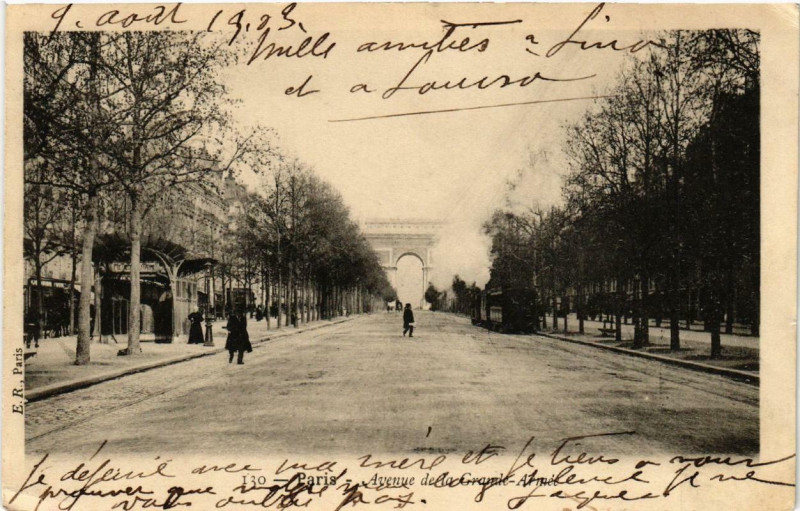 9. août 1903.
Mille amitiés à Lina
et à Louise
E. R., Paris
130 — Paris - Avenue de la Grande-Armée
Je déjeûne avec ma mère et je tiens à vous
prouver que malgré le silence je ne
vous oublie pas.
Jacques